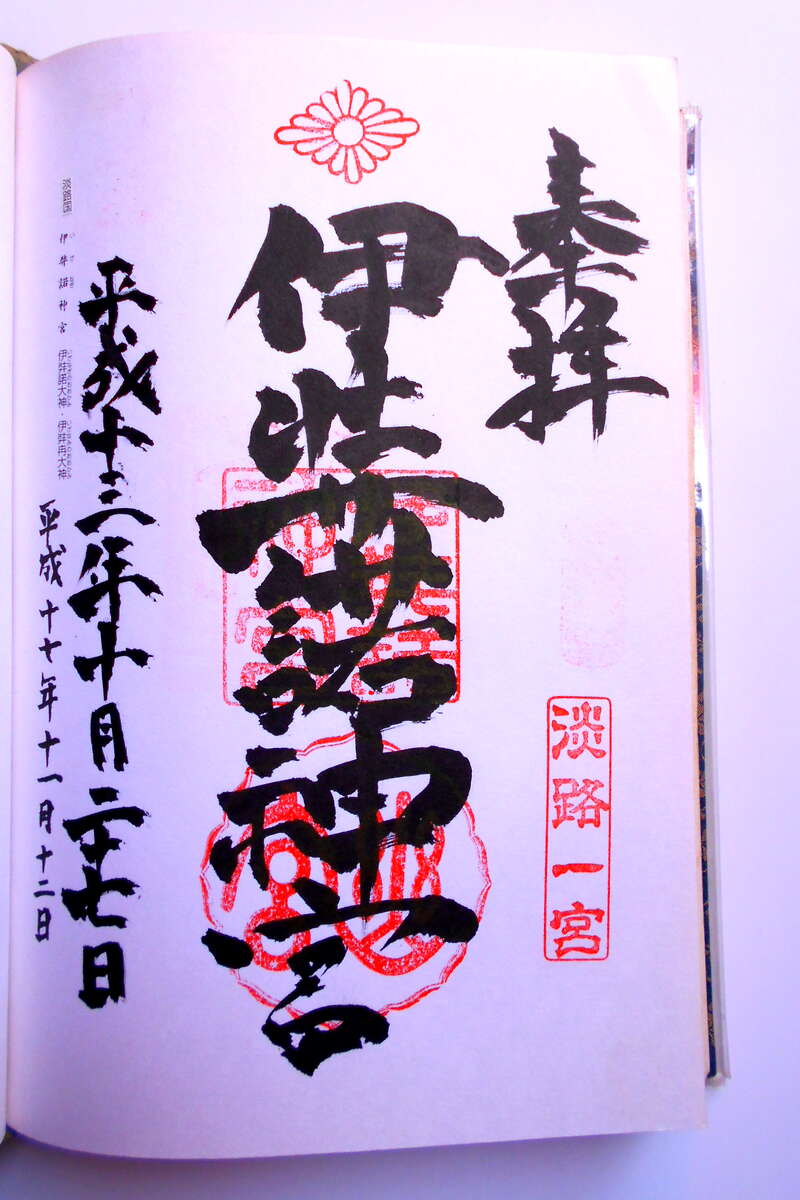 奉拝
淡路一宮
伊弉諾神宮
平成十三年十月二十七日
淡路国 伊弉諾神宮 伊弉諾大神・伊弉冉大神
平成十七年十一月十二日